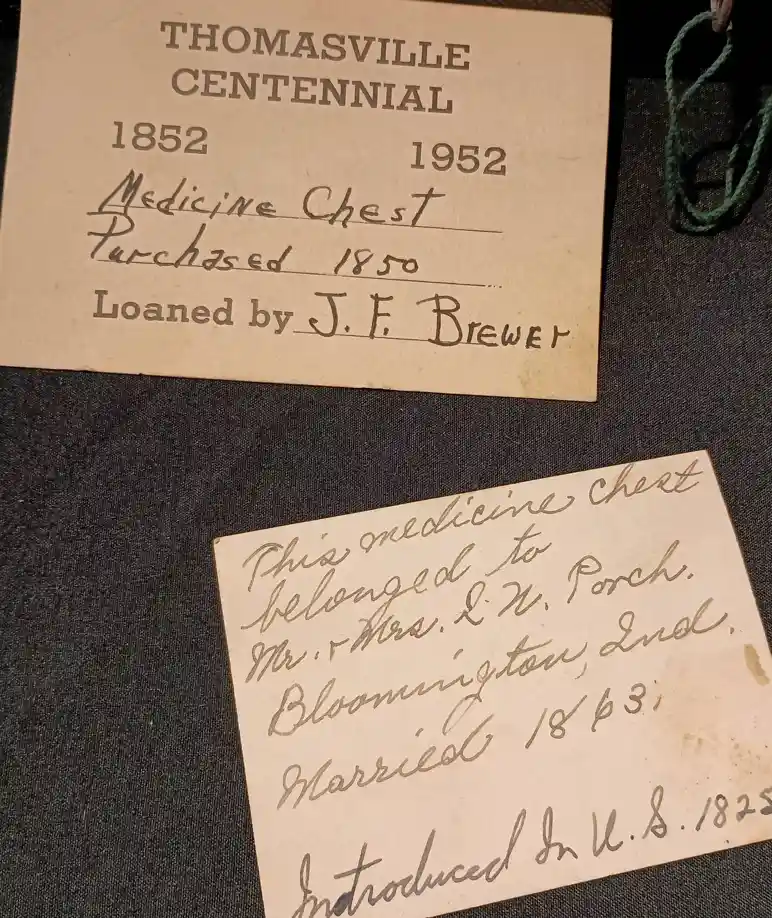 THOMASVILLE
CENTENNIAL
1852 1952
Medicine Chest
Purchased 1850
Loaned by J. F. Brewer
This medicine chest
belonged to
Mr. & Mrs. I. N. Porch.
Bloomington, Ind.
Married 1863;
Introduced In U. S. 1825